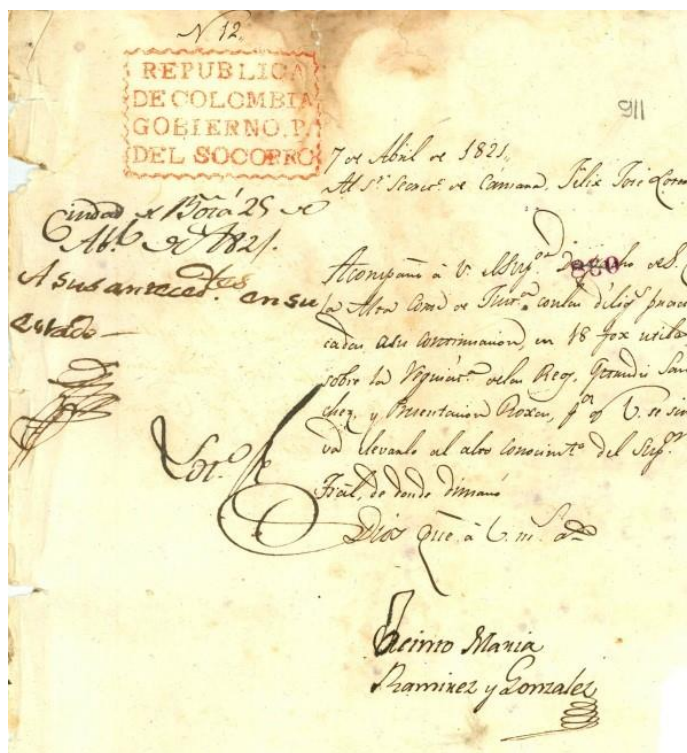 N. 12.
REPUBLICA
DE COLOMBIA
GOBIERNO. P.
DEL SOCORRO
911
7 de Abril de 1821,,
Al Sr. Secreto. de Camara, Felix José Loren
Ciudad de Botá 25 de
Ab.l de 1821.
A sus anteced.tes en su
estado
Acompaño à V. el Sup.or
880
la Alta Corte de Just.a con las dilig.s practi
cadas asu continuacion, en 18 fox utiles
sobre la de las Reos, Gertrudis San
chez, y Presentacion Roxas, p.a q.e V. se sir
va llevarlo al alto conocimto. del Sup.r
Trãl, de donde dimanò
Dios gue. à V. m.s a.s
Jacinto Maria
Ramirez y Gonzalez